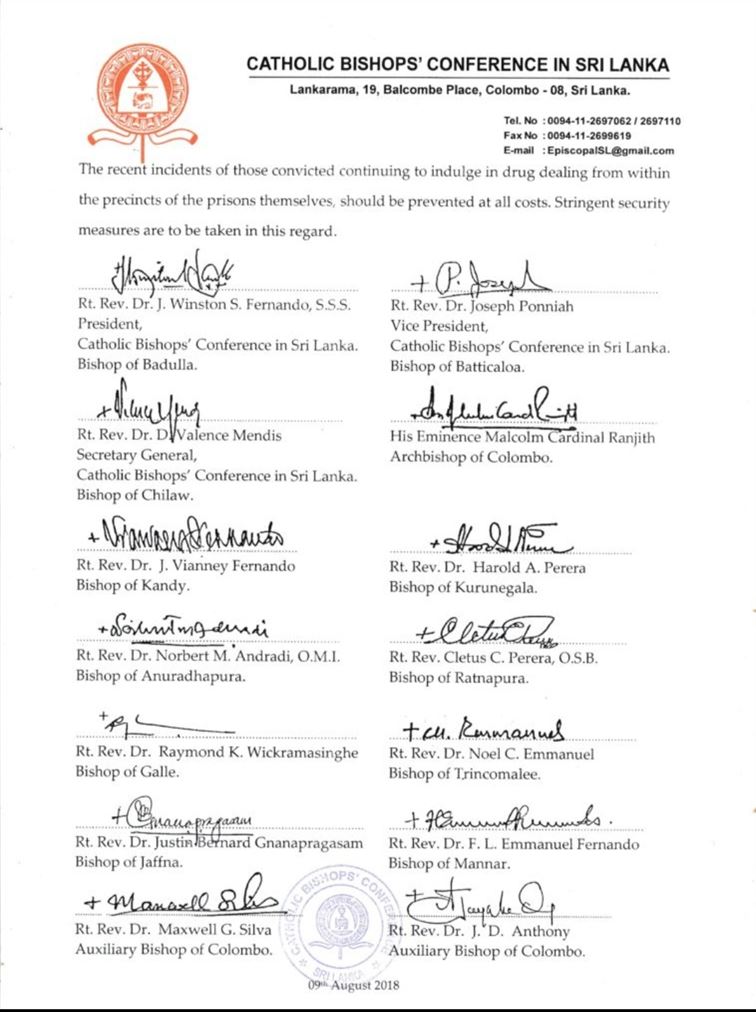 CATHOLIC BISHOPS' CONFERENCE IN SRI LANKA
Lankarama, 19, Balcombe Place, Colombo - 08, Sri Lanka.
Tel. No : 0094-11-2697062 / 2697110
Fax No : 0094-11-2699619
E-mail : EpiscopalSL@gmail.com
The recent incidents of those convicted continuing to indulge in drug dealing from within
the precincts of the prisons themselves, should be prevented at all costs. Stringent security
measures are to be taken in this regard.
Rt. Rev. Dr. J. Winston S. Fernando, S.S.S.
President,
Catholic Bishops' Conference in Sri Lanka.
Bishop of Badulla.
+ P. Joseph
Rt. Rev. Dr. Joseph Ponniah
Vice President,
Catholic Bishops' Conference in Sri Lanka.
Bishop of Batticaloa.
Rt. Rev. Dr. D. Valence Mendis
Secretary General,
Catholic Bishops' Conference in Sri Lanka.
Bishop of Chilaw.
His Eminence Malcolm Cardinal Ranjith
Archbishop of Colombo.
Rt. Rev. Dr. J. Vianney Fernando
Bishop of Kandy.
Rt. Rev. Dr. Harold A. Perera
Bishop of Kurunegala.
Rt. Rev. Dr. Norbert M. Andradi, O.M.I.
Bishop of Anuradhapura.
Rt. Rev. Cletus C. Perera, O.S.B.
Bishop of Ratnapura.
Rt. Rev. Dr. Raymond K. Wickramasinghe
Bishop of Galle.
Rt. Rev. Dr. Noel C. Emmanuel
Bishop of Trincomalee.
Rt. Rev. Dr. Justin Bernard Gnanapragasam
Bishop of Jaffna.
Rt. Rev. Dr. F. L. Emmanuel Fernando
Bishop of Mannar.
+ Maxwell Silva
Rt. Rev. Dr. Maxwell G. Silva
Auxiliary Bishop of Colombo.
Rt. Rev. Dr. J. D. Anthony
Auxiliary Bishop of Colombo.
CATHOLIC BISHOPS' CONFERENCE
SRI LANKA
09th August 2018